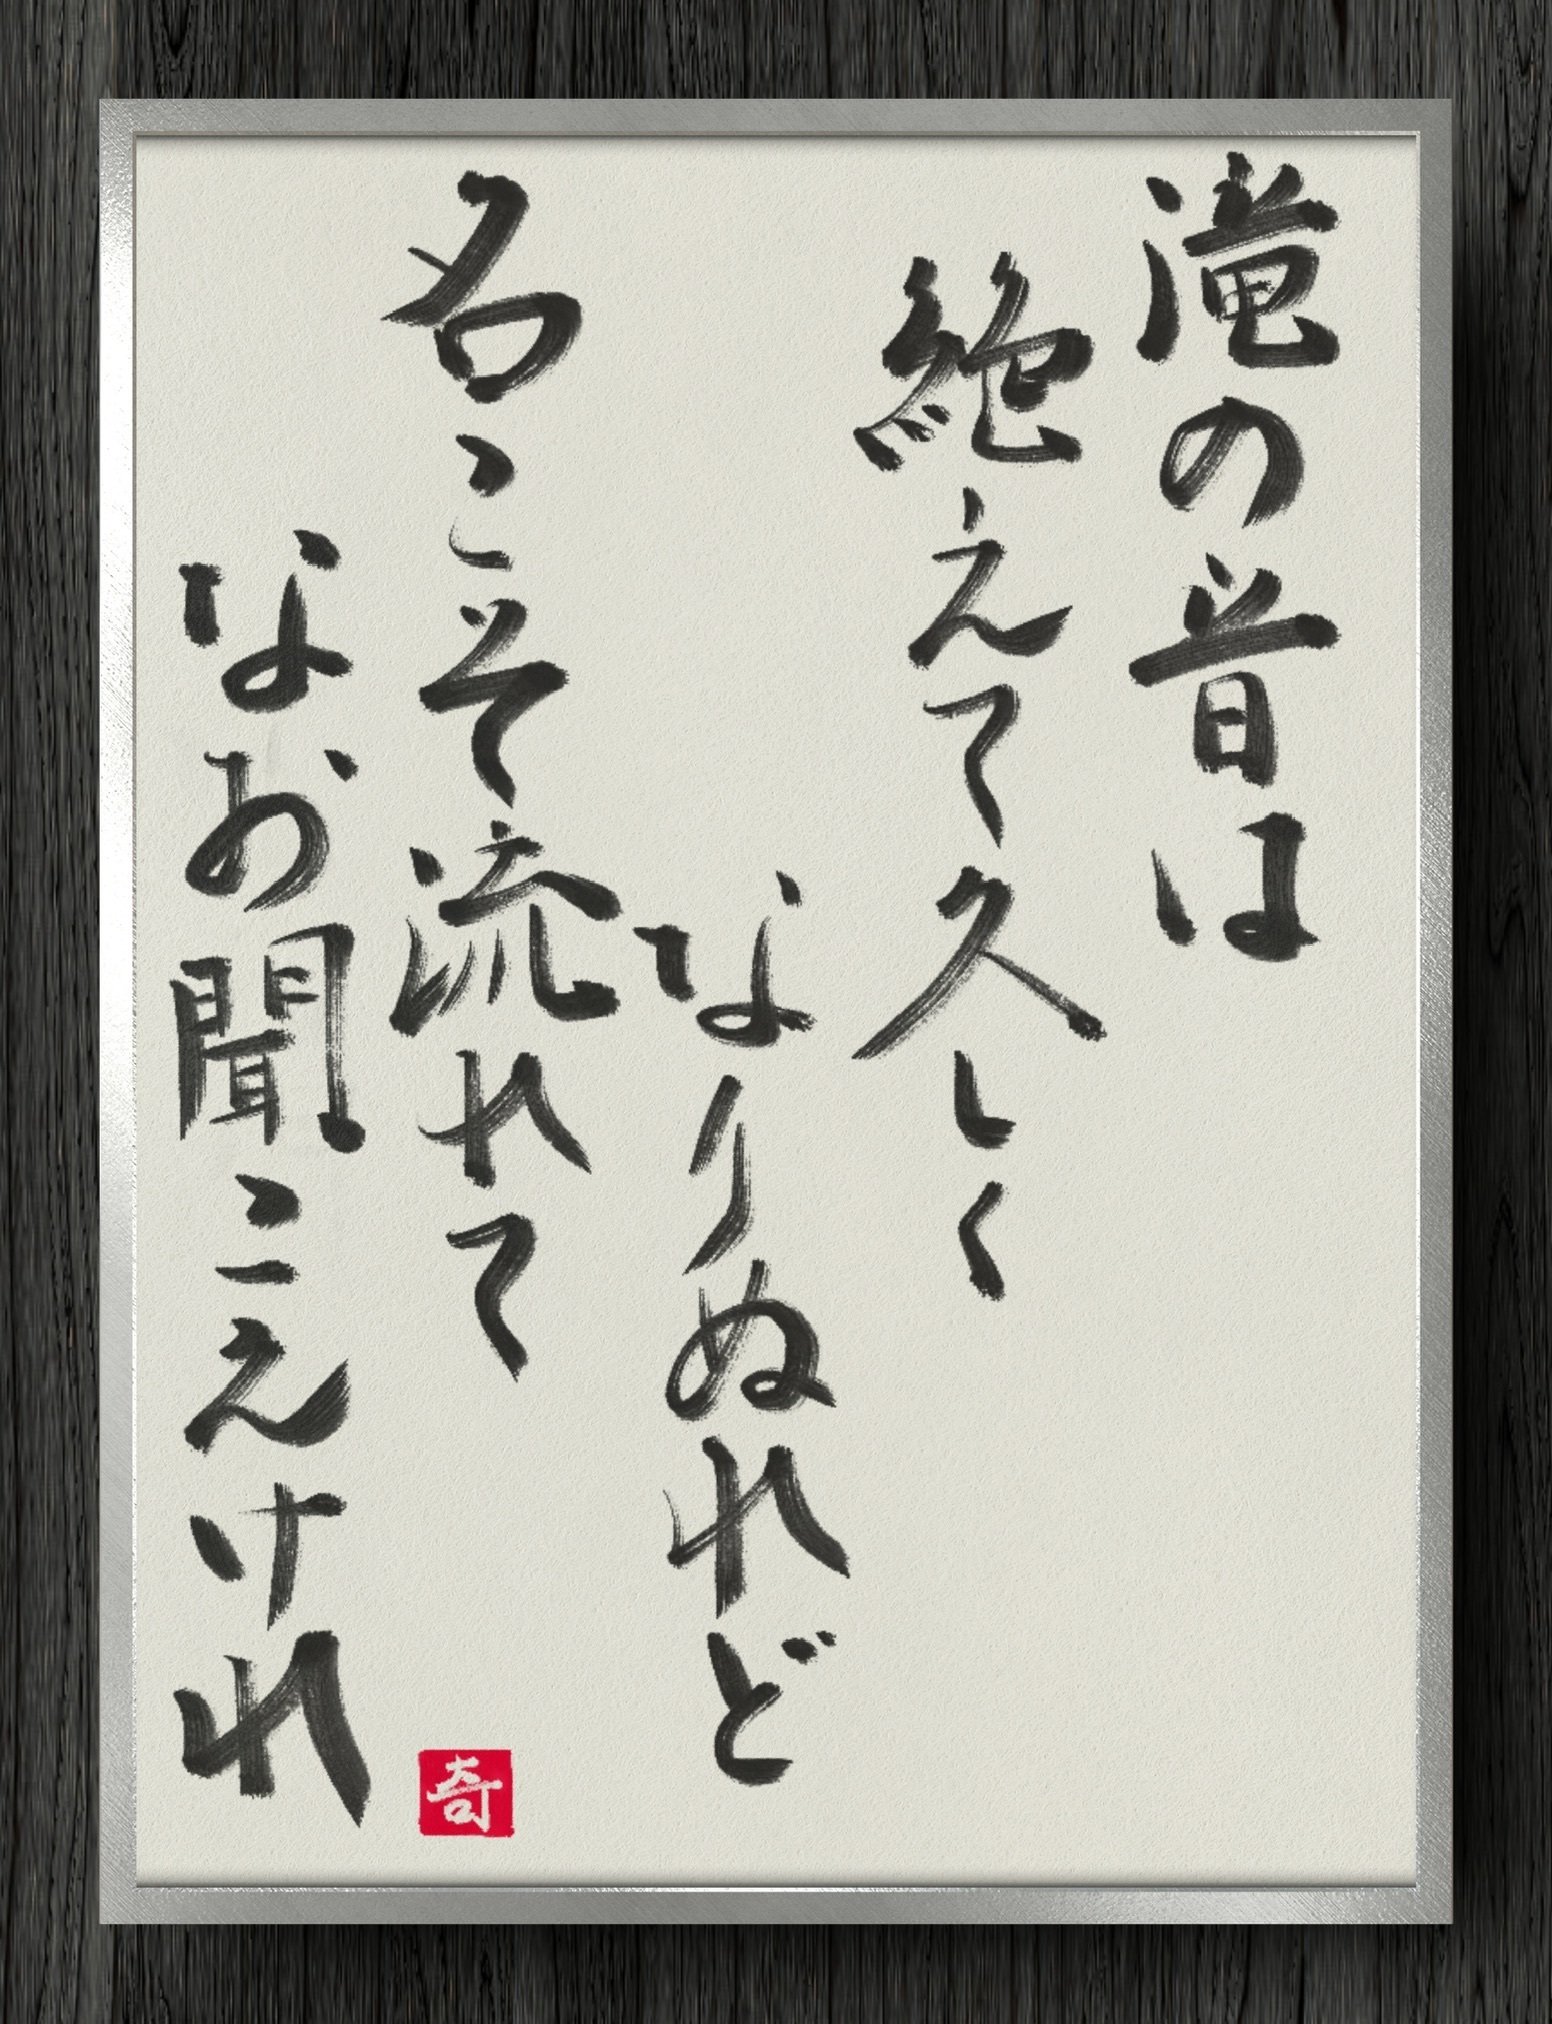 滝の音は
絶えて久しく
なりぬれど
名こそ流れて
なお聞こえけれ
奇